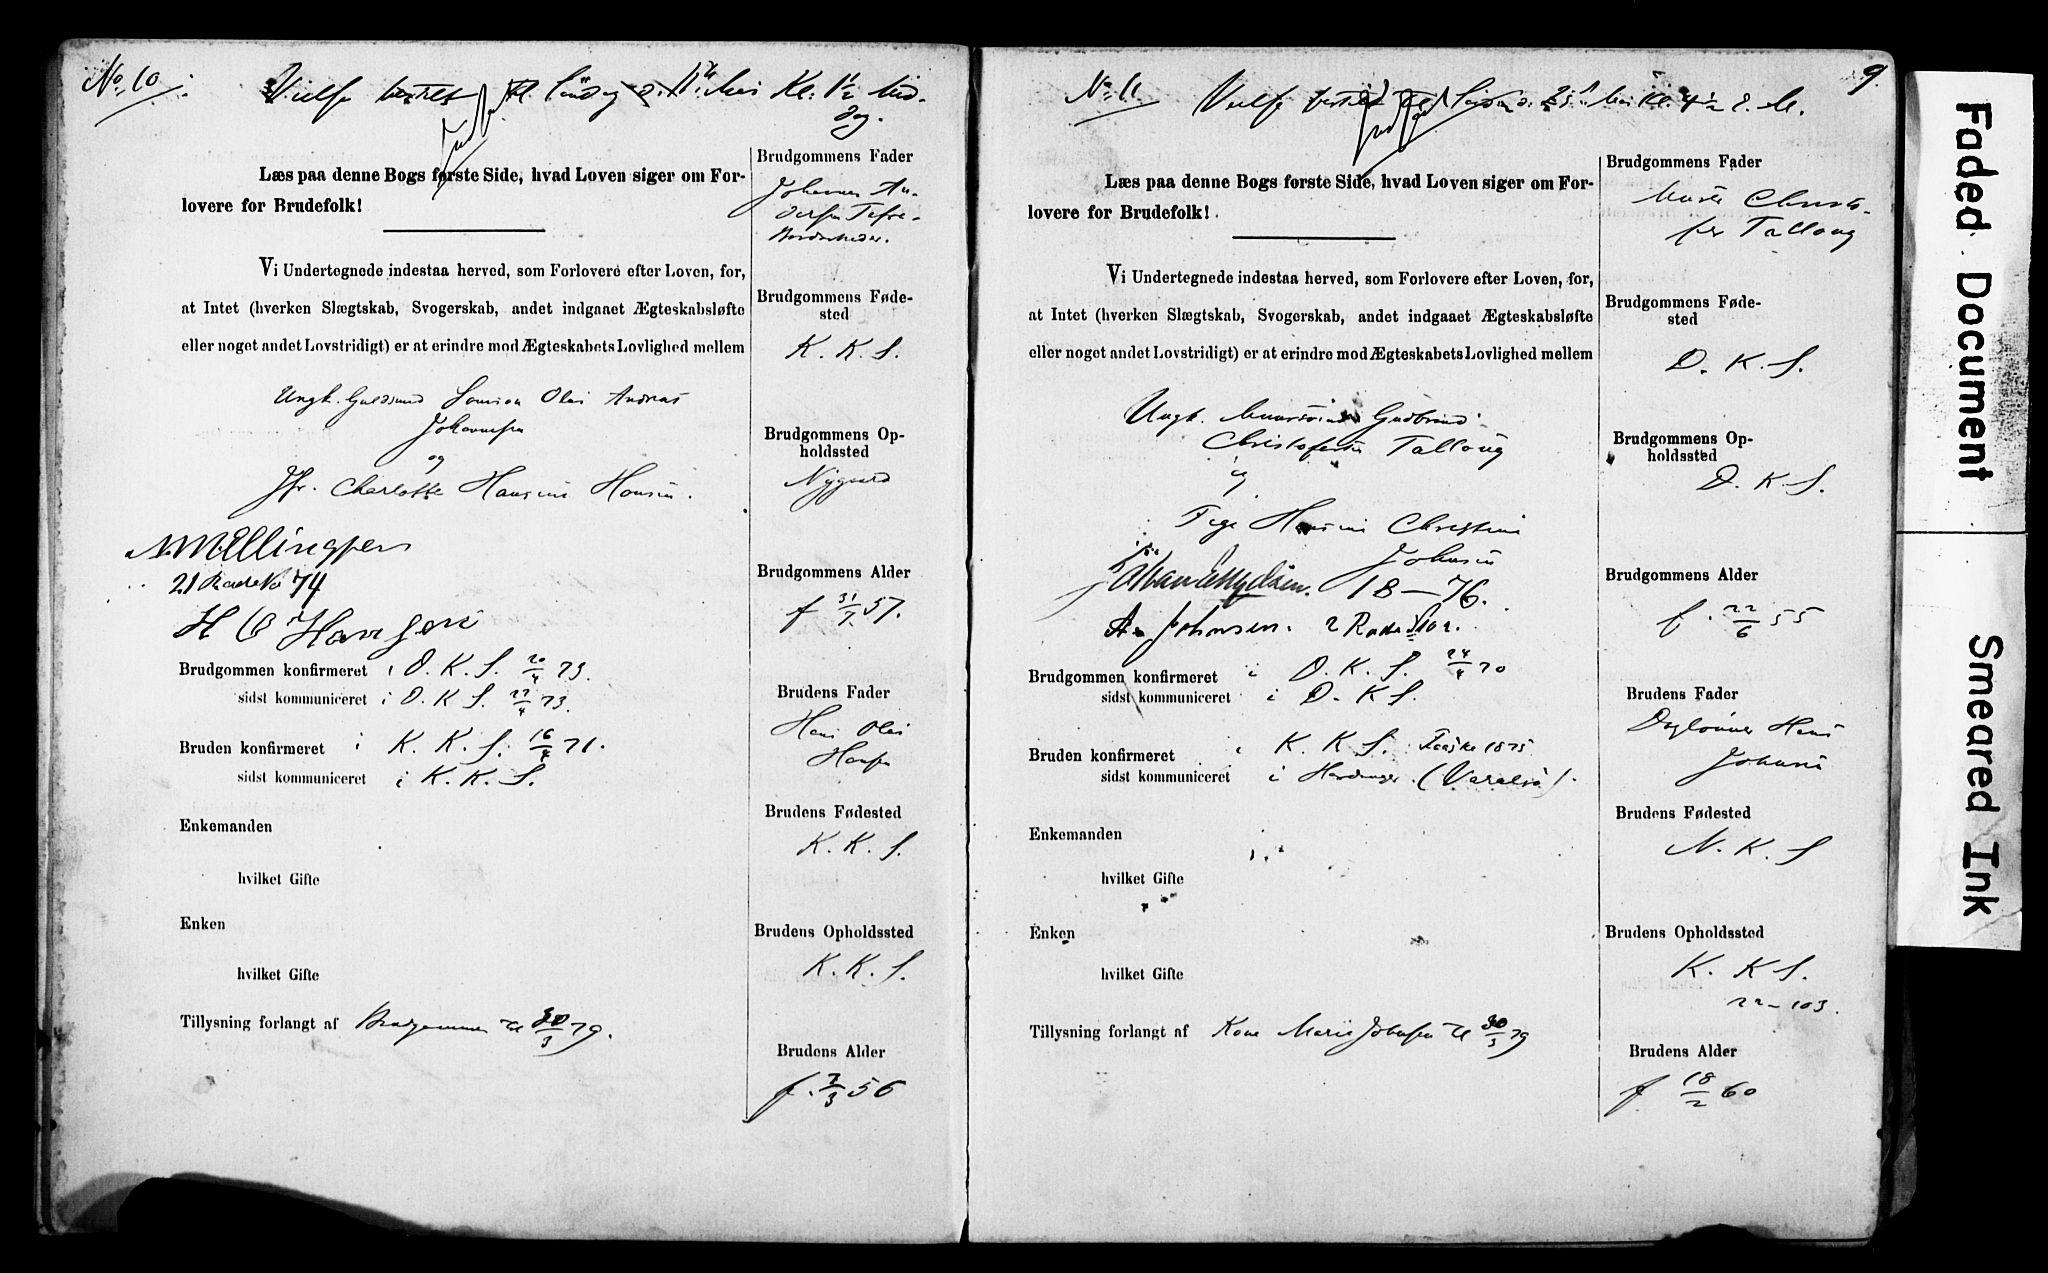 No. 10
Vielse bestilt til Søndag d. 11te Mai Kl. 1½ Mid-
dag.
Læs paa denne Bogs første Side, hvad Loven siger om For-
lovere for Brudefolk!
Vi Undertegnede indestaa herved, som Forlovere efter Loven, for,
at Intet (hverken Slægtskab, Svogerskab, andet indgaaet Ægteskabsløfte
eller noget andet Lovstridigt) er at erindre mod Ægteskabets Lovlighed mellem
Ungk. Guldsmed Olai Andreas
Johannesen
og
Jfr. Charlotte Hansine Hansen.
21 Rode No 74
H O Hansen
Brudgommen konfirmeret i D. K. S. 20/4 73.
sidst kommuniceret i D. K. S. 27/4 73.
Bruden konfirmeret i K. K. S. 16/4 71.
sidst kommuniceret i K. K. S.
Enkemanden
hvilket Gifte
Enken
hvilket Gifte
Tillysning forlangt af Brudgommen til 30/3 79.
Brudgommens Fader
Johannes An-
dersen
Brudgommens Føde-
sted
K. K. S.
Brudgommens Op-
holdssted
Nygaard
Brudgommens Alder
f 31/7 57.
Brudens Fader
Hans Olai
Hansen
Brudens Fødested
K. K. S.
Brudens Opholdssted
K. K. S.
Brudens Alder
f. 7/3 56
9.
No. 11
Vielse bestilt til Søndag d. 25 Mai Kl. 4½ E. M.
Læs paa denne Bogs første Side, hvad Loven siger om For-
lovere for Brudefolk!
Vi Undertegnede indestaa herved, som Forlovere efter Loven, for,
at Intet (hverken Slægtskab, Svogerskab, andet indgaaet Ægteskabsløfte
eller noget andet Lovstridigt) er at erindre mod Ægteskabets Lovlighed mellem
Ungk. Gudbrand
Christofersen Tallaug
og
Pige Hansine Christine
Johnsen
18—76.
A. Johnsen. 2 Rode
Brudgommen konfirmeret i D. K. S. 24/4 70
sidst kommuniceret i D. K. S.
Bruden konfirmeret i K. K. S. Paaske 1875
sidst kommuniceret i Hardanger (Varalsø).
Enkemanden
hvilket Gifte
Enken
hvilket Gifte
Tillysning forlangt af Kone Marie Johnsen til 30/3 79
Brudgommens Fader
Murer Christo-
fer Tallaug
Brudgommens Føde-
sted
D. K. S.
Brudgommens Op-
holdssted
D. K. S.
Brudgommens Alder
f. 22/6 55
Brudens Fader
Daglønner Hans
Johnsen
Brudens Fødested
N. K. S
Brudens Opholdssted
K. K. S.
22—103.
Brudens Alder
f 18/2 60
Faded Document
Smeared Ink